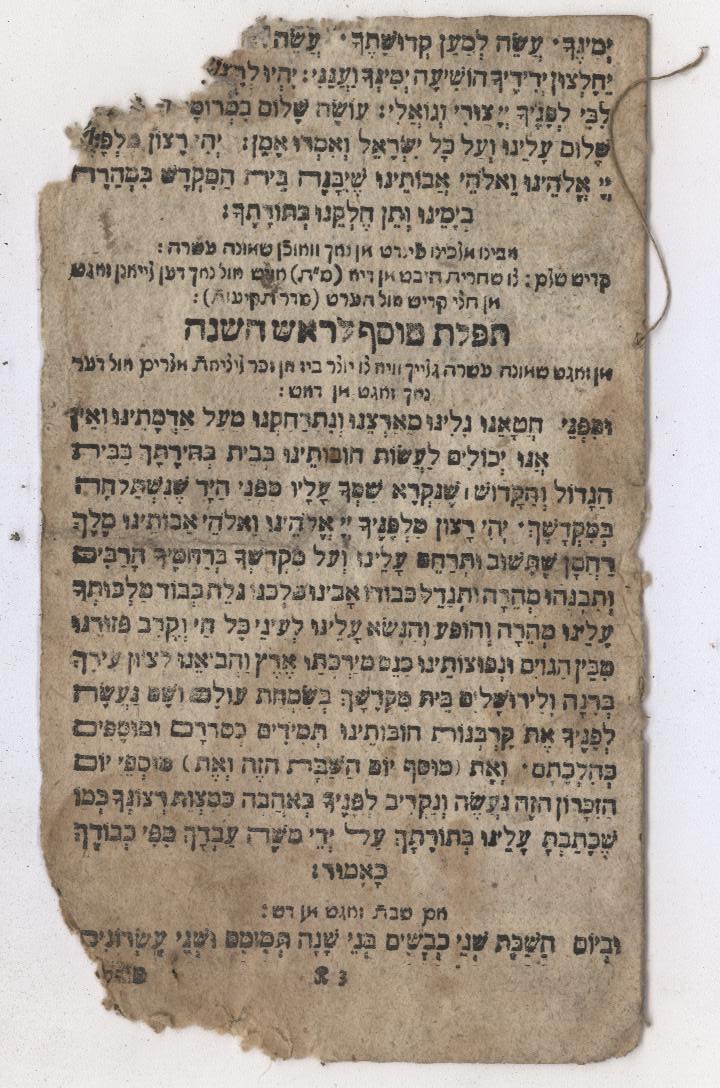 יְמִינֶךָ · עֲשֵׂה לְמַעַן קְדוּשָׁתֶךָ · עֲשֵׂה
יֵחָלְצוּן יְדִידֶיךָ הוֹשִׁיעָה יְמִינְךָ וַעֲנֵנִי : יִהְיוּ לְרָצוֹן
לִבִּי לְפָנֶיךָ יְיָ צוּרִי וְגוֹאֲלִי : עוֹשֶׂה שָׁלוֹם בִּמְרוֹמָיו
שָׁלוֹם עָלֵינוּ וְעַל כָּל יִשְׂרָאֵל וְאִמְרוּ אָמֵן : יְהִי רָצוֹן מִלְּפָנֶיךָ
יְיָ אֱלֹהֵינוּ וֵאלֹהֵי אֲבוֹתֵינוּ שֶׁיִּבָּנֶה בֵּית הַמִּקְדָּשׁ בִּמְהֵרָה
בְיָמֵינוּ וְתֵן חֶלְקֵנוּ בְּתוֹרָתֶךָ :
אבינו מלכינו שמונה עשרה :
קדיש שלם : צו שחרית היבט מן דיא (ס״ת) נאך דען
(סדר תקיעות) :
תפלת מוסף לראש השנה
מן זאגט שמונה עשרה גלייך וויא צו
נאך זאגט מן דאש :
וּמִפְּנֵי חֲטָאֵנוּ גָּלִינוּ מֵאַרְצֵנוּ וְנִתְרַחַקְנוּ מֵעַל אַדְמָתֵינוּ וְאֵין
אָנוּ יְכוֹלִים לַעֲשׂוֹת חוֹבוֹתֵינוּ בְּבֵית בְּחִירָתֶךָ בַּבַּיִת
הַגָּדוֹל וְהַקָּדוֹשׁ שֶׁנִּקְרָא שִׁמְךָ עָלָיו מִפְּנֵי הַיָּד שֶׁנִּשְׁתַּלְּחָה
בְּמִקְדָּשֶׁךָ · יְהִי רָצוֹן מִלְּפָנֶיךָ יְיָ אֱלֹהֵינוּ וֵאלֹהֵי אֲבוֹתֵינוּ מֶלֶךְ
רַחֲמָן שֶׁתָּשׁוּב וּתְרַחֵם עָלֵינוּ וְעַל מִקְדָּשְׁךָ בְּרַחֲמֶיךָ הָרַבִּים
וְתִבְנֵהוּ מְהֵרָה וּתְגַדֵּל כְּבוֹדוֹ אָבִינוּ מַלְכֵּנוּ גַּלֵּה כְּבוֹד מַלְכוּתְךָ
עָלֵינוּ מְהֵרָה וְהוֹפַע וְהִנָּשֵׂא עָלֵינוּ לְעֵינֵי כָּל חַי וְקָרֵב פְּזוּרֵנוּ
מִבֵּין הַגּוֹיִם וּנְפוּצוֹתֵינוּ כַּנֵּס מִיַּרְכְּתֵי אָרֶץ וַהֲבִיאֵנוּ לְצִיּוֹן עִירֶךָ
בְּרִנָּה וְלִירוּשָׁלַיִם בֵּית מִקְדָּשְׁךָ בְּשִׂמְחַת עוֹלָם וְשָׁם נַעֲשֶׂה
לְפָנֶיךָ אֶת קָרְבְּנוֹת חוֹבוֹתֵינוּ תְּמִידִים כְּסִדְרָם וּמוּסָפִים
כְּהִלְכָתָם · וְאֶת (מוּסַף יוֹם הַשַּׁבָּת הַזֶּה וְאֶת) מוּסְפֵי יוֹם
הַזִּכָּרוֹן הַזֶּה נַעֲשֶׂה וְנַקְרִיב לְפָנֶיךָ בְּאַהֲבָה כְּמִצְוַת רְצוֹנֶךָ כְּמוֹ
שֶׁכָּתַבְתָּ עָלֵינוּ בְּתוֹרָתֶךָ עַל יְדֵי מֹשֶׁה עַבְדֶּךָ מִפִּי כְבוֹדֶךָ
כָּאָמוּר :
אם שבת זאגט מן דש :
וּבְיוֹם הַשַּׁבָּת שְׁנֵי כְבָשִׂים בְּנֵי שָׁנָה תְּמִימִם וּשְׁנֵי עֶשְׂרוֹנִים
3